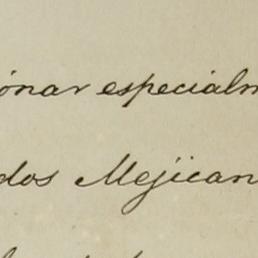 ónar especialm
dos Mejican